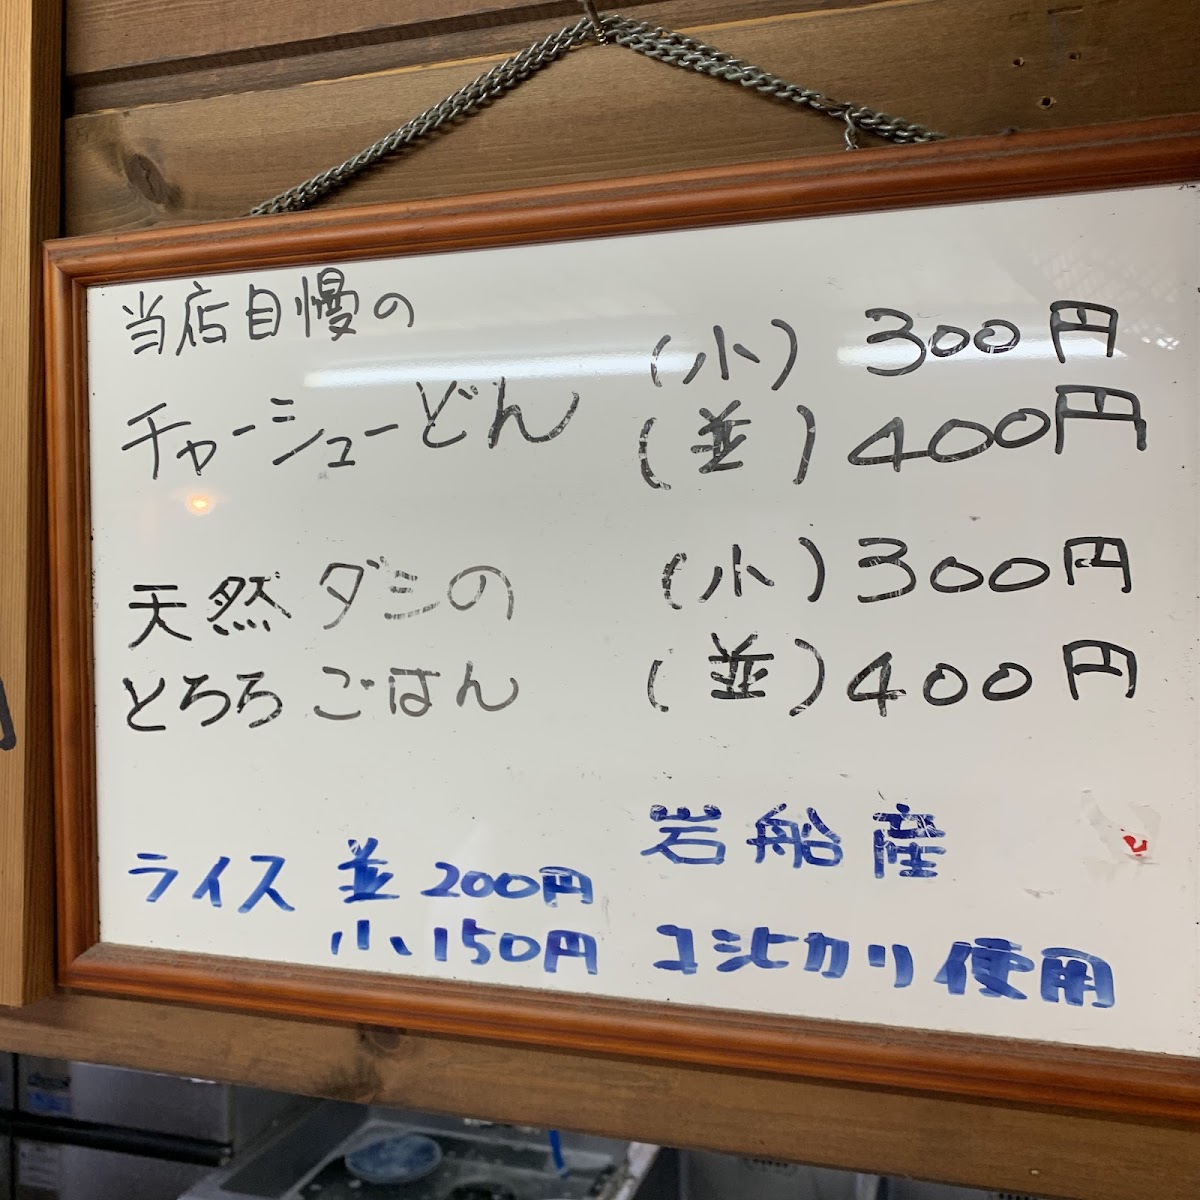 当店自慢の
チャーシューどん
(小) 300円
(並) 400円
天然ダシの
とろろごはん
(小) 300円
(並) 400円
ライス 並 200円
小 150円
岩船産
コシヒカリ使用